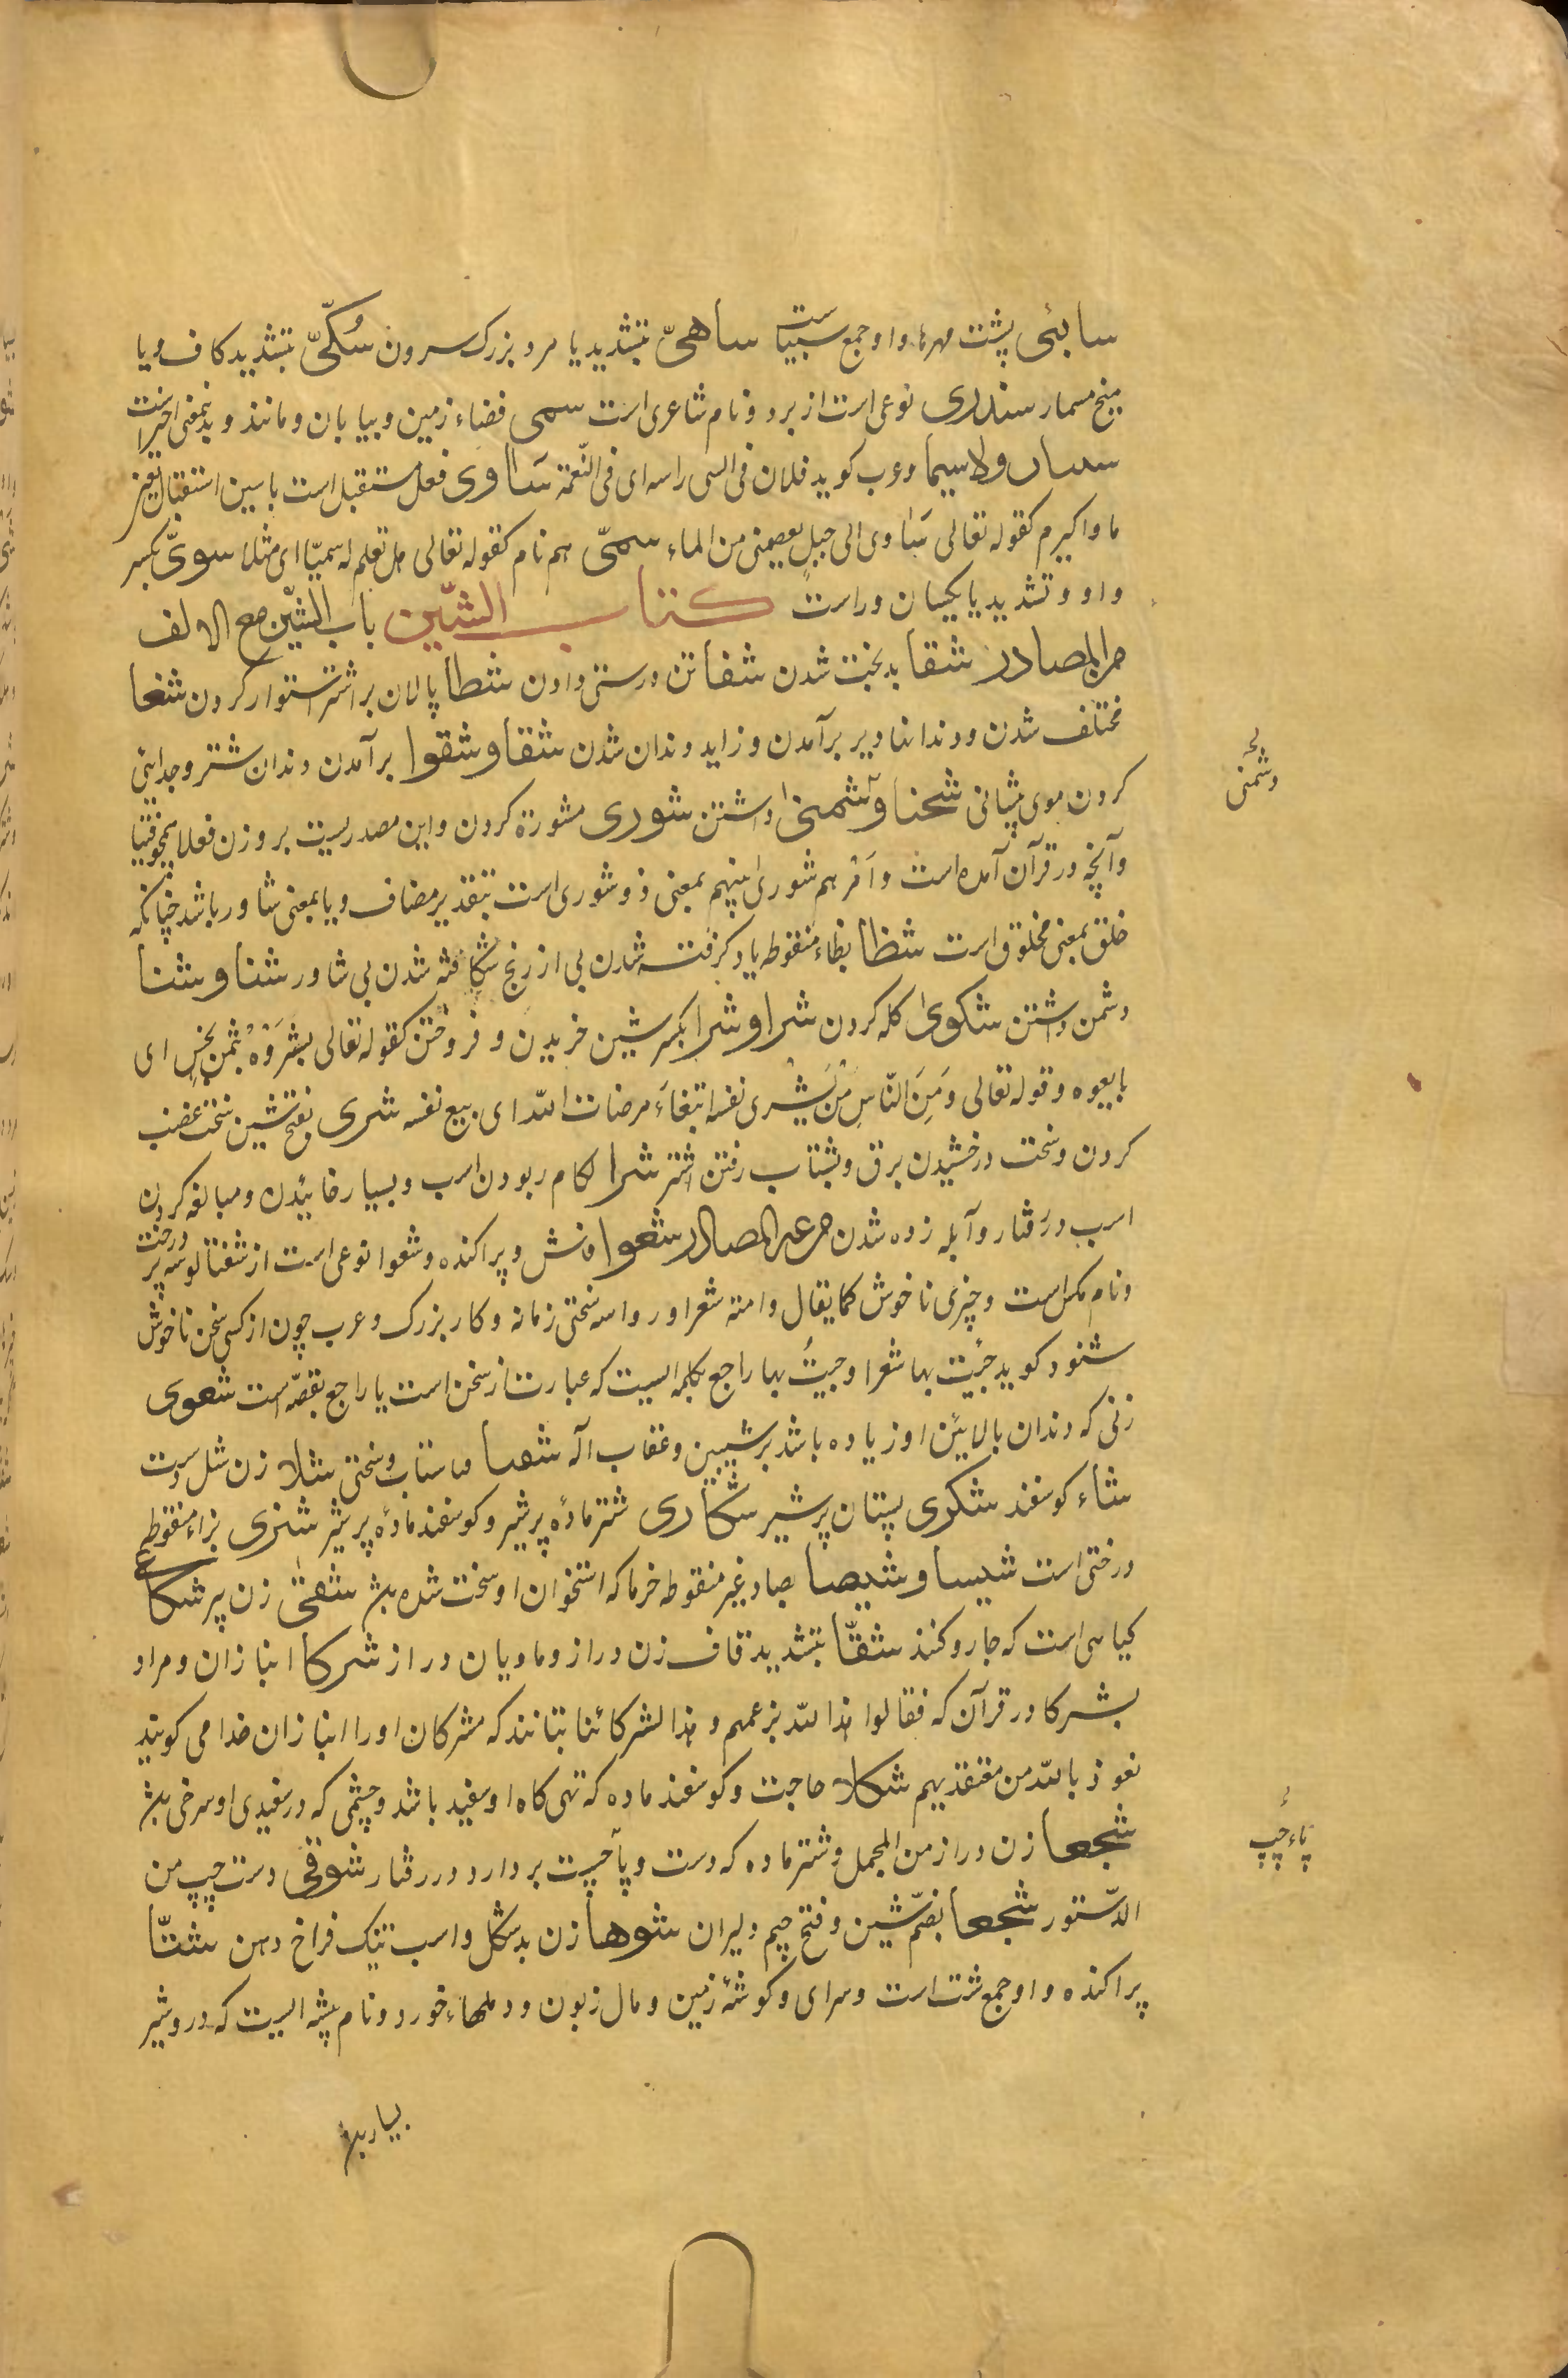 سابئی پشت مهرها و او جمع سبیاست ساهیّ بتشدید یا مرد بزرک سرون سُکّیّ بتشدید کاف و یا
میخ مسمار سندری نوعی است از برد و نام شاعری است سمی فضاء زمین و بیابان و مانند و بدینمعنی اخیر است
سیان ولاسیما و عرب کوید فلان فی السی راسه ای فی النّعمة سَاٰوی فعل مستقبل است باسین استقبال یعنی
ماوا کیرم کقوله تعالی سَاٰوی الی جبلٍ یعصمنی من الماء سمیّ هم نام کقوله تعالی هل تعلم له سمیّا ای مثلا سویّ بکسر
واو و تشدید یا یکسان و راست کتاب الشّین باب الشّین مع الالف
من المصادر شقا بدبخت شدن شفا تن درستی دادن شطا پالان بر اشتر استوار کردن شغا
مختلف شدن و دندانها دیر برآمدن و زاید دندان شدن شقا و شقوا برآمدن دندان شتر و جدایی
کردن موی پیشانی شحنا و شمنیٰ داشتن شوری مشورة کردن و این مصدریست بر وزن فعلا همچو فتیا
و آنچه در قرآن آمده است و اَمْرُهم شوریٰ بینهم بمعنی ذو شوری است بتقدیر مضاف و یا بمعنی شاور باشد چنانکه
خلق بمعنی مخلوق است شظا بظاء منقوطه یاد کرفته شدن پی از رنج شکافته شدن پی شاور شنا و شنا
دشمن داشتن شکویٰ کله کردن شرا و شرا بکسر شین خریدن و فروختن کقوله تعالی بشَرَوْهُ بثمنٍ بخسٍ ای
بایعوه و قوله تعالی وَمِنَ النّاسِ مَنْ یَشری نفسه ابتغاءَ مرضات الله ای یبیع نفسه شری بفتح شین سخت غضب
کردن و سخت درخشیدن برق و بشتاب رفتن اشتر شرا لکام ربودن اسب و بسیار خائیدن و مبالغه کردن
اسب در رفتار و آبله زده شدن من غیر المصادر شعوا فاش و پراکنده و شعوا نوعی است از شفتالو سه پر درخت
و نام مکس است و چیزی ناخوش کما یقال وامته شعرا و رواسه سختی زمانه و کار بزرک و عرب چون از کسی سخن ناخوش
شنود کوید جئیت بها شعرا و جییتُ بها راجع بکلمه ایست که عبارت از سخن است یا راجع بقصّه است شعوی
زنی که دندان بالایین او زیاده باشد بر شیبین و عقاب اله شصا ماهتاب و سختی شلا زن شل دست
شاء کوسفند شکری پستان پر شیر شکاری شتر مادهٔ پر شیر و کوسفند مادهٔ پر شیر شنزی بزاء منقوطه
درختی است شیسا و شیصا بصاد غیر منقوطه خرما که استخوان او سخت شده باشد شهقی زن پیر شکاعی
کیاهی است که جاروکنند شقّا بتشدید قاف زن دراز و مادیان دراز شرکا انبازان و مراد
بشرکا در قرآن که فقالوا هذا لله بزعمهم و هذا لشرکائنا بتانند که مشرکان او را انبازان خدا می کویند
نعوذ بالله من معتقدیهم شکلا حاجت و کوسفند ماده که تهی کاه او سفید باشد و چشمی که در سفیدی او سرخی باشد
شجعا زن دراز من المجمل و شتر ماده که دست و پا چست بردارد در رفتار شوقی دست چپ من
الدّستور شجعا بضمّ شین و فتح جیم دلیران شوها زن بدشکل و اسب نیک فراخ دهن شتّا
پراکنده و او جمع شت است و سرای و کوشهٔ زمین و مال زبون و دملهاء خورد و نام بیشه ایست که در و شیر
دشمنی
پاء چپ
بسیار باشد